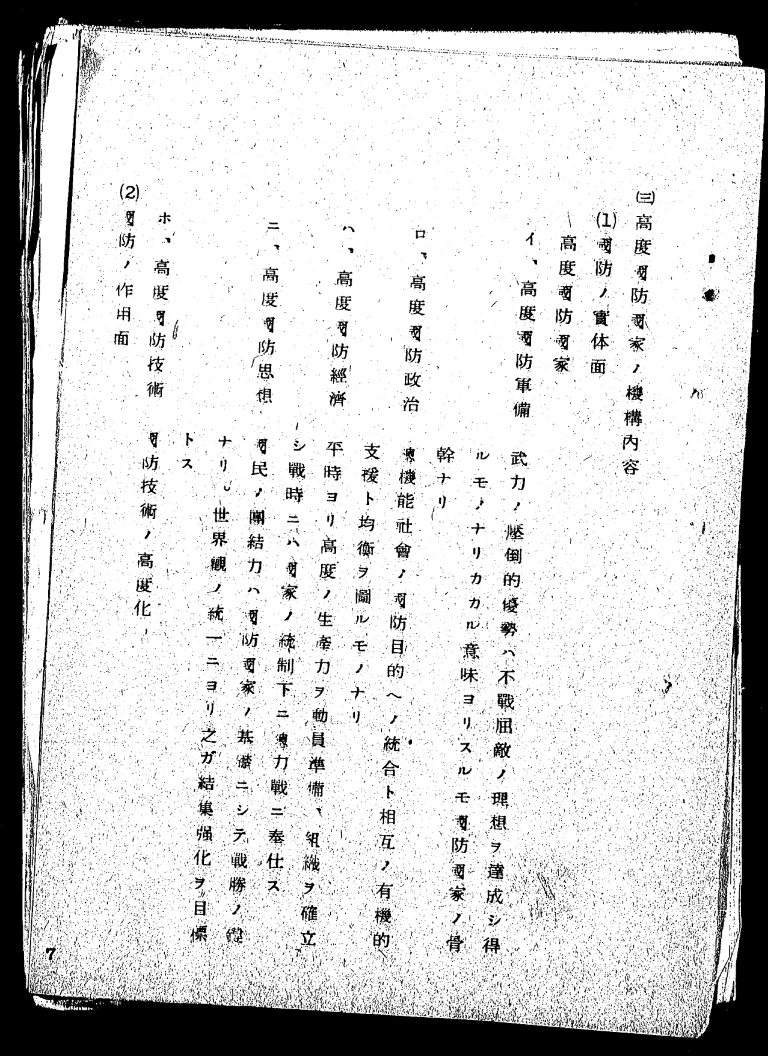 ㈢高度國防國家ノ機構內容
(1)國防ノ實体面
高度國防國家
イ、高度國防軍備
武力ノ壓倒的優勢ハ不戰屈敵ノ理想ヲ達成シ得
ルモノナリカカル意味ヨリスルモ國防國家ノ骨
幹ナリ
ロ、高度國防政治
總機能社會ノ國防目的ヘノ統合ト相互ノ有機的
支援ト均衡ヲ圖ルモノナリ
ハ、高度國防經濟
平時ヨリ高度ノ生產力ヲ動員準備、組織ヲ確立
シ戰時ニハ國家ノ統制下ニ總力戰ニ奉仕ス
ニ、高度國防思想
國民ノ團結力ハ國防國家ノ基礎ニシテ戰勝ノ
ナリ。世界觀ノ統一ニヨリ之ガ結集强化ヲ目標
トス
ホ、高度國防技術
國防技術ノ高度化
(2)國防ノ作用面
7